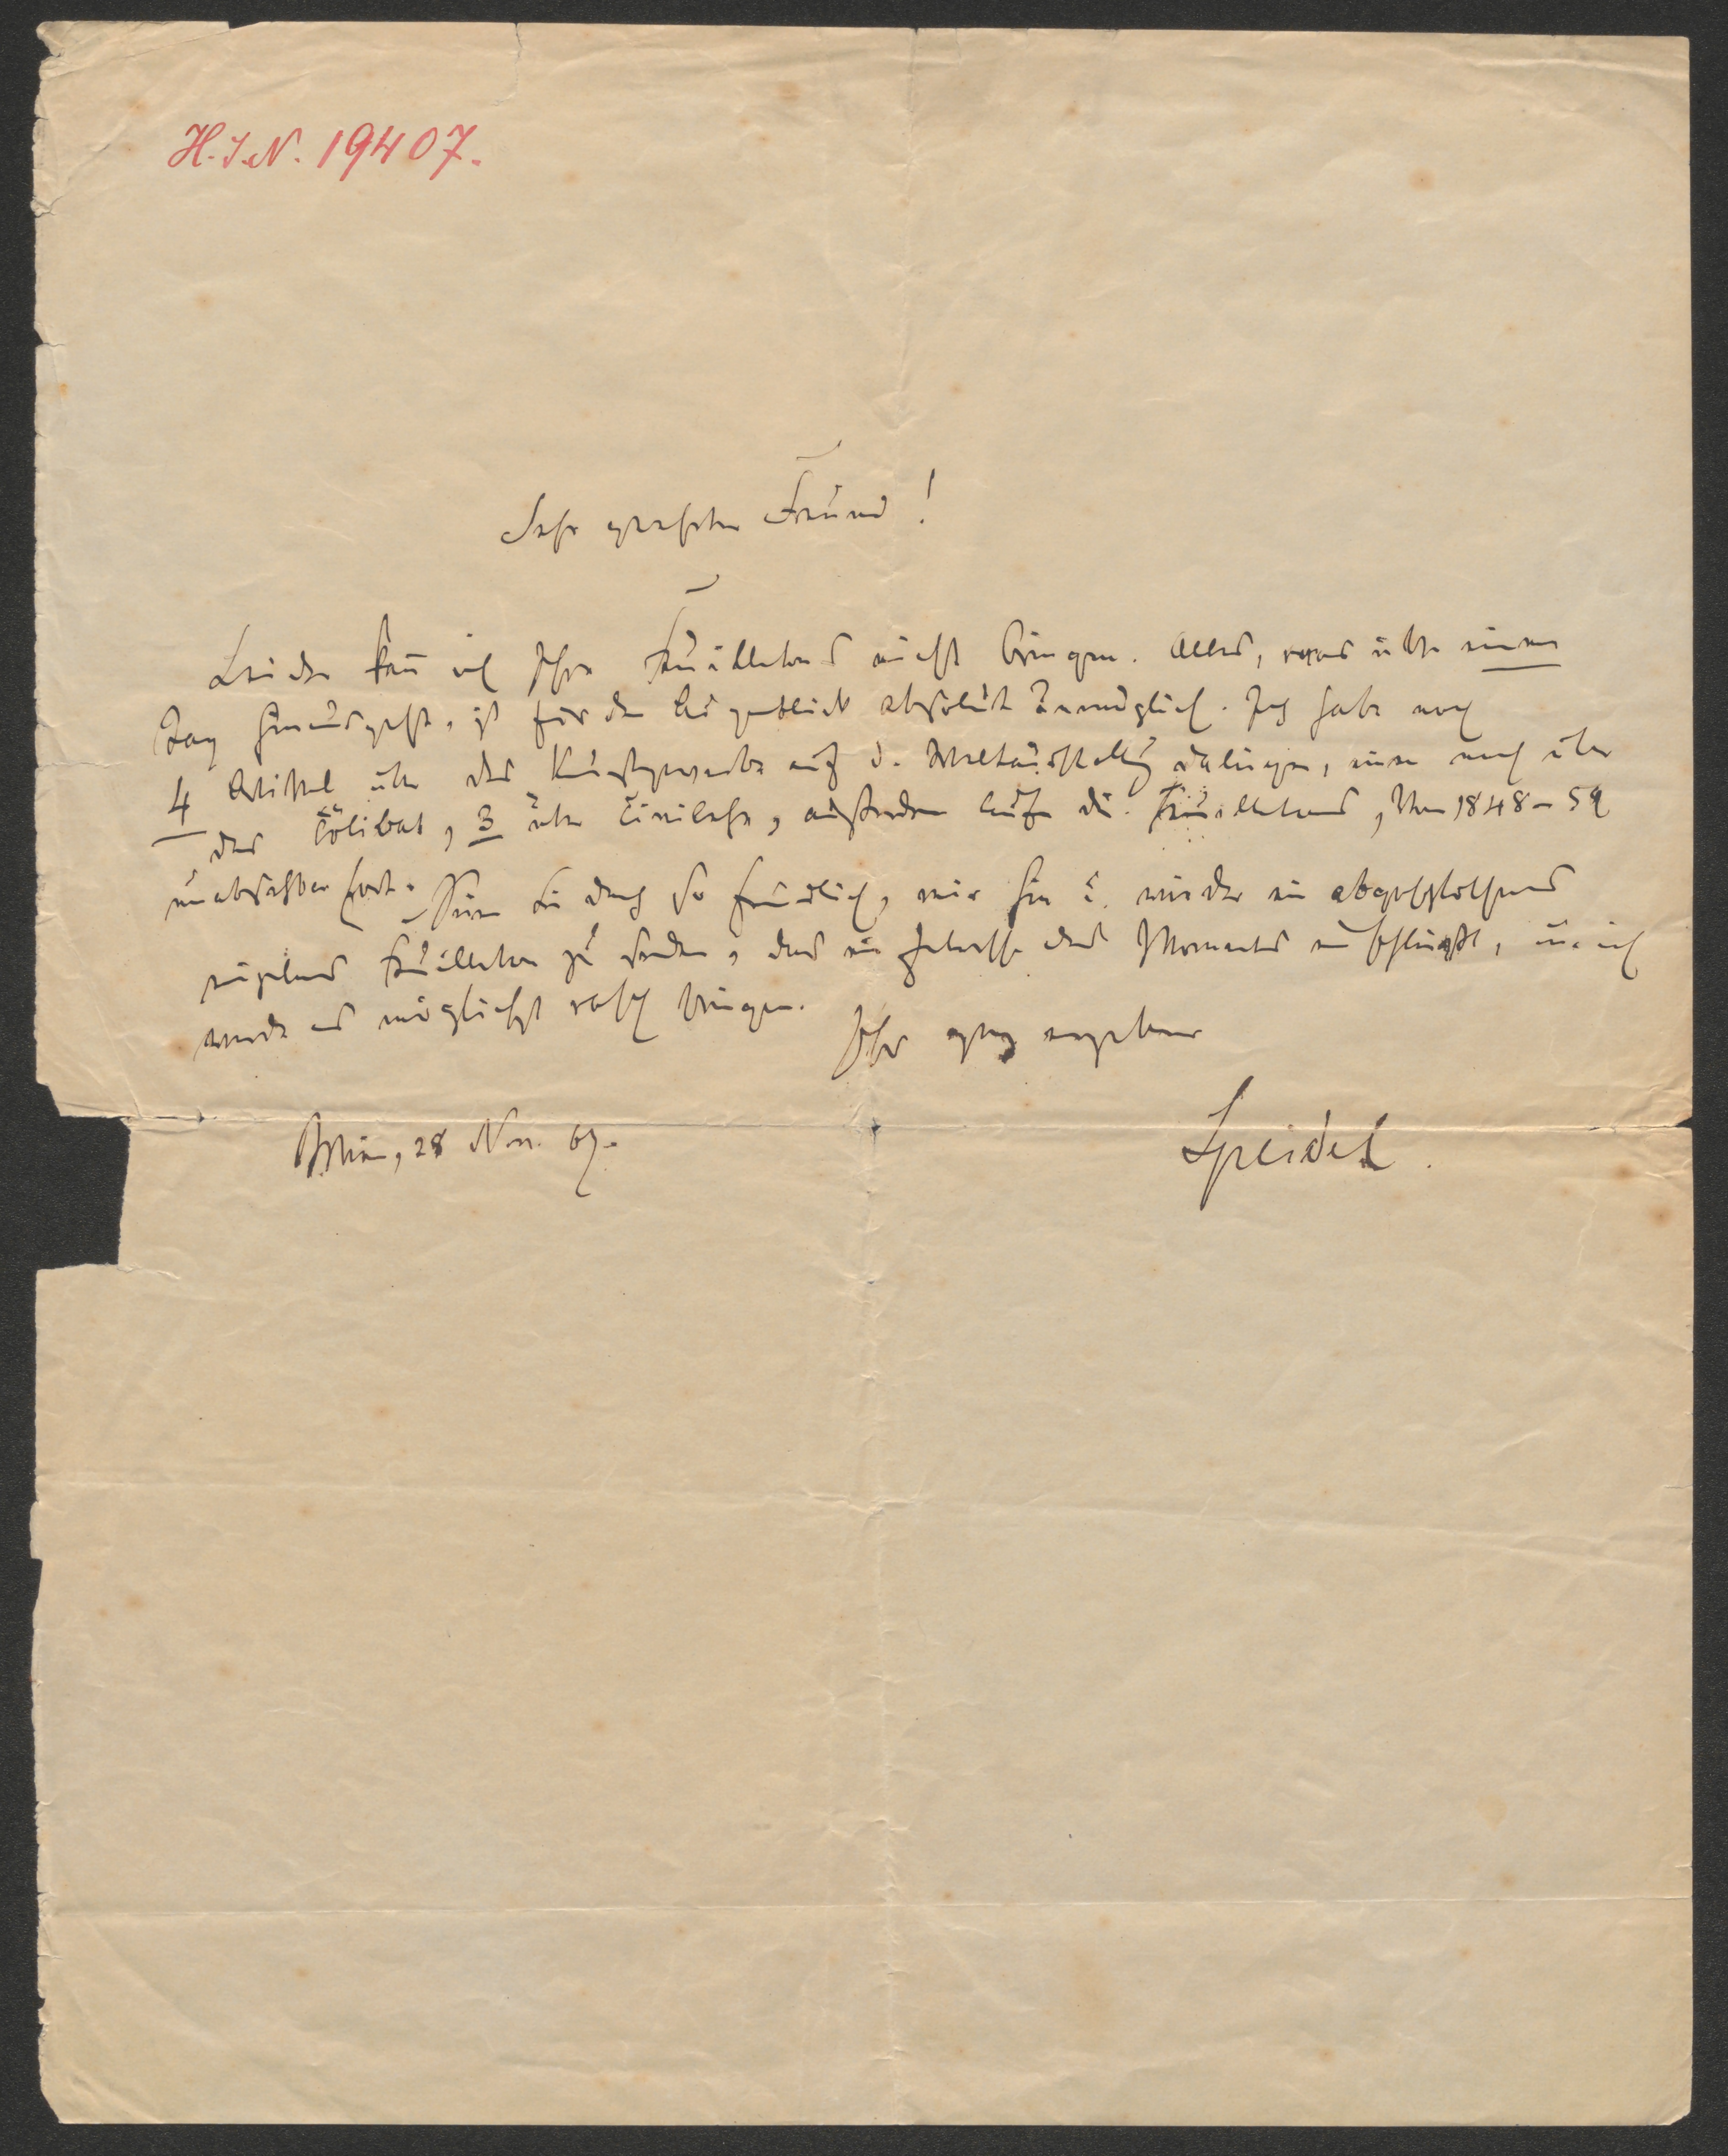 H.I.N. 19407.
Sehr geehrter Freund!
Leider kann ich Ihre Feuilletons nicht bringen. Alles, was über einen
Tag hinausgeht, ist für den Augenblick absolut unmöglich. Ich habe noch
4 Artikel über das Kunstgewerbe auf d. Weltausstellung daliegen, einen noch über
das Cölibat, 3 über Civilehe, außerdem laufen die Feuilletons, Wien 1848–59
unabsehbar fort. Seien Sie doch so freundlich, mir hin u. wieder ein abgeschlossenes
einzelnes Feuilleton zu senden, das ein Interesse des Moments einschließt, u. ich
werde es möglichst rasch bringen.
Ihr ganz ergebener
Wien, 28 Nov. 67.
Speidel.